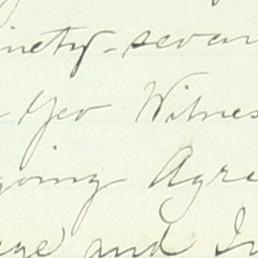 inety-seven
Geo Witnes
going Agre
age and In